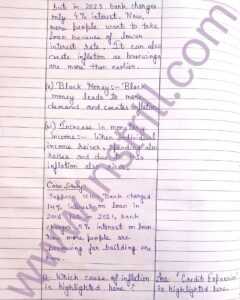 but in 2023 bank charges
only 4% interest. Now,
more people want to take
loan because of lower
interest rate. It can also
create inflation as borrowings
are more than earlier.
(v) Black Money:- Black
money leads to more
demand and creates inflation
(vi) Increase in monetary
income:- When individual
income raises, spending also
raises and due to this
inflation also
Case Study
Suppose icici Bank charged
14% interest on loan in
but in 2021, bank
charges % interest on loan.
Now more people are
borrowing for building the
Q. Which cause of inflation
is highlighted here?
Ans "Credit Expansion"
is highlighted here.